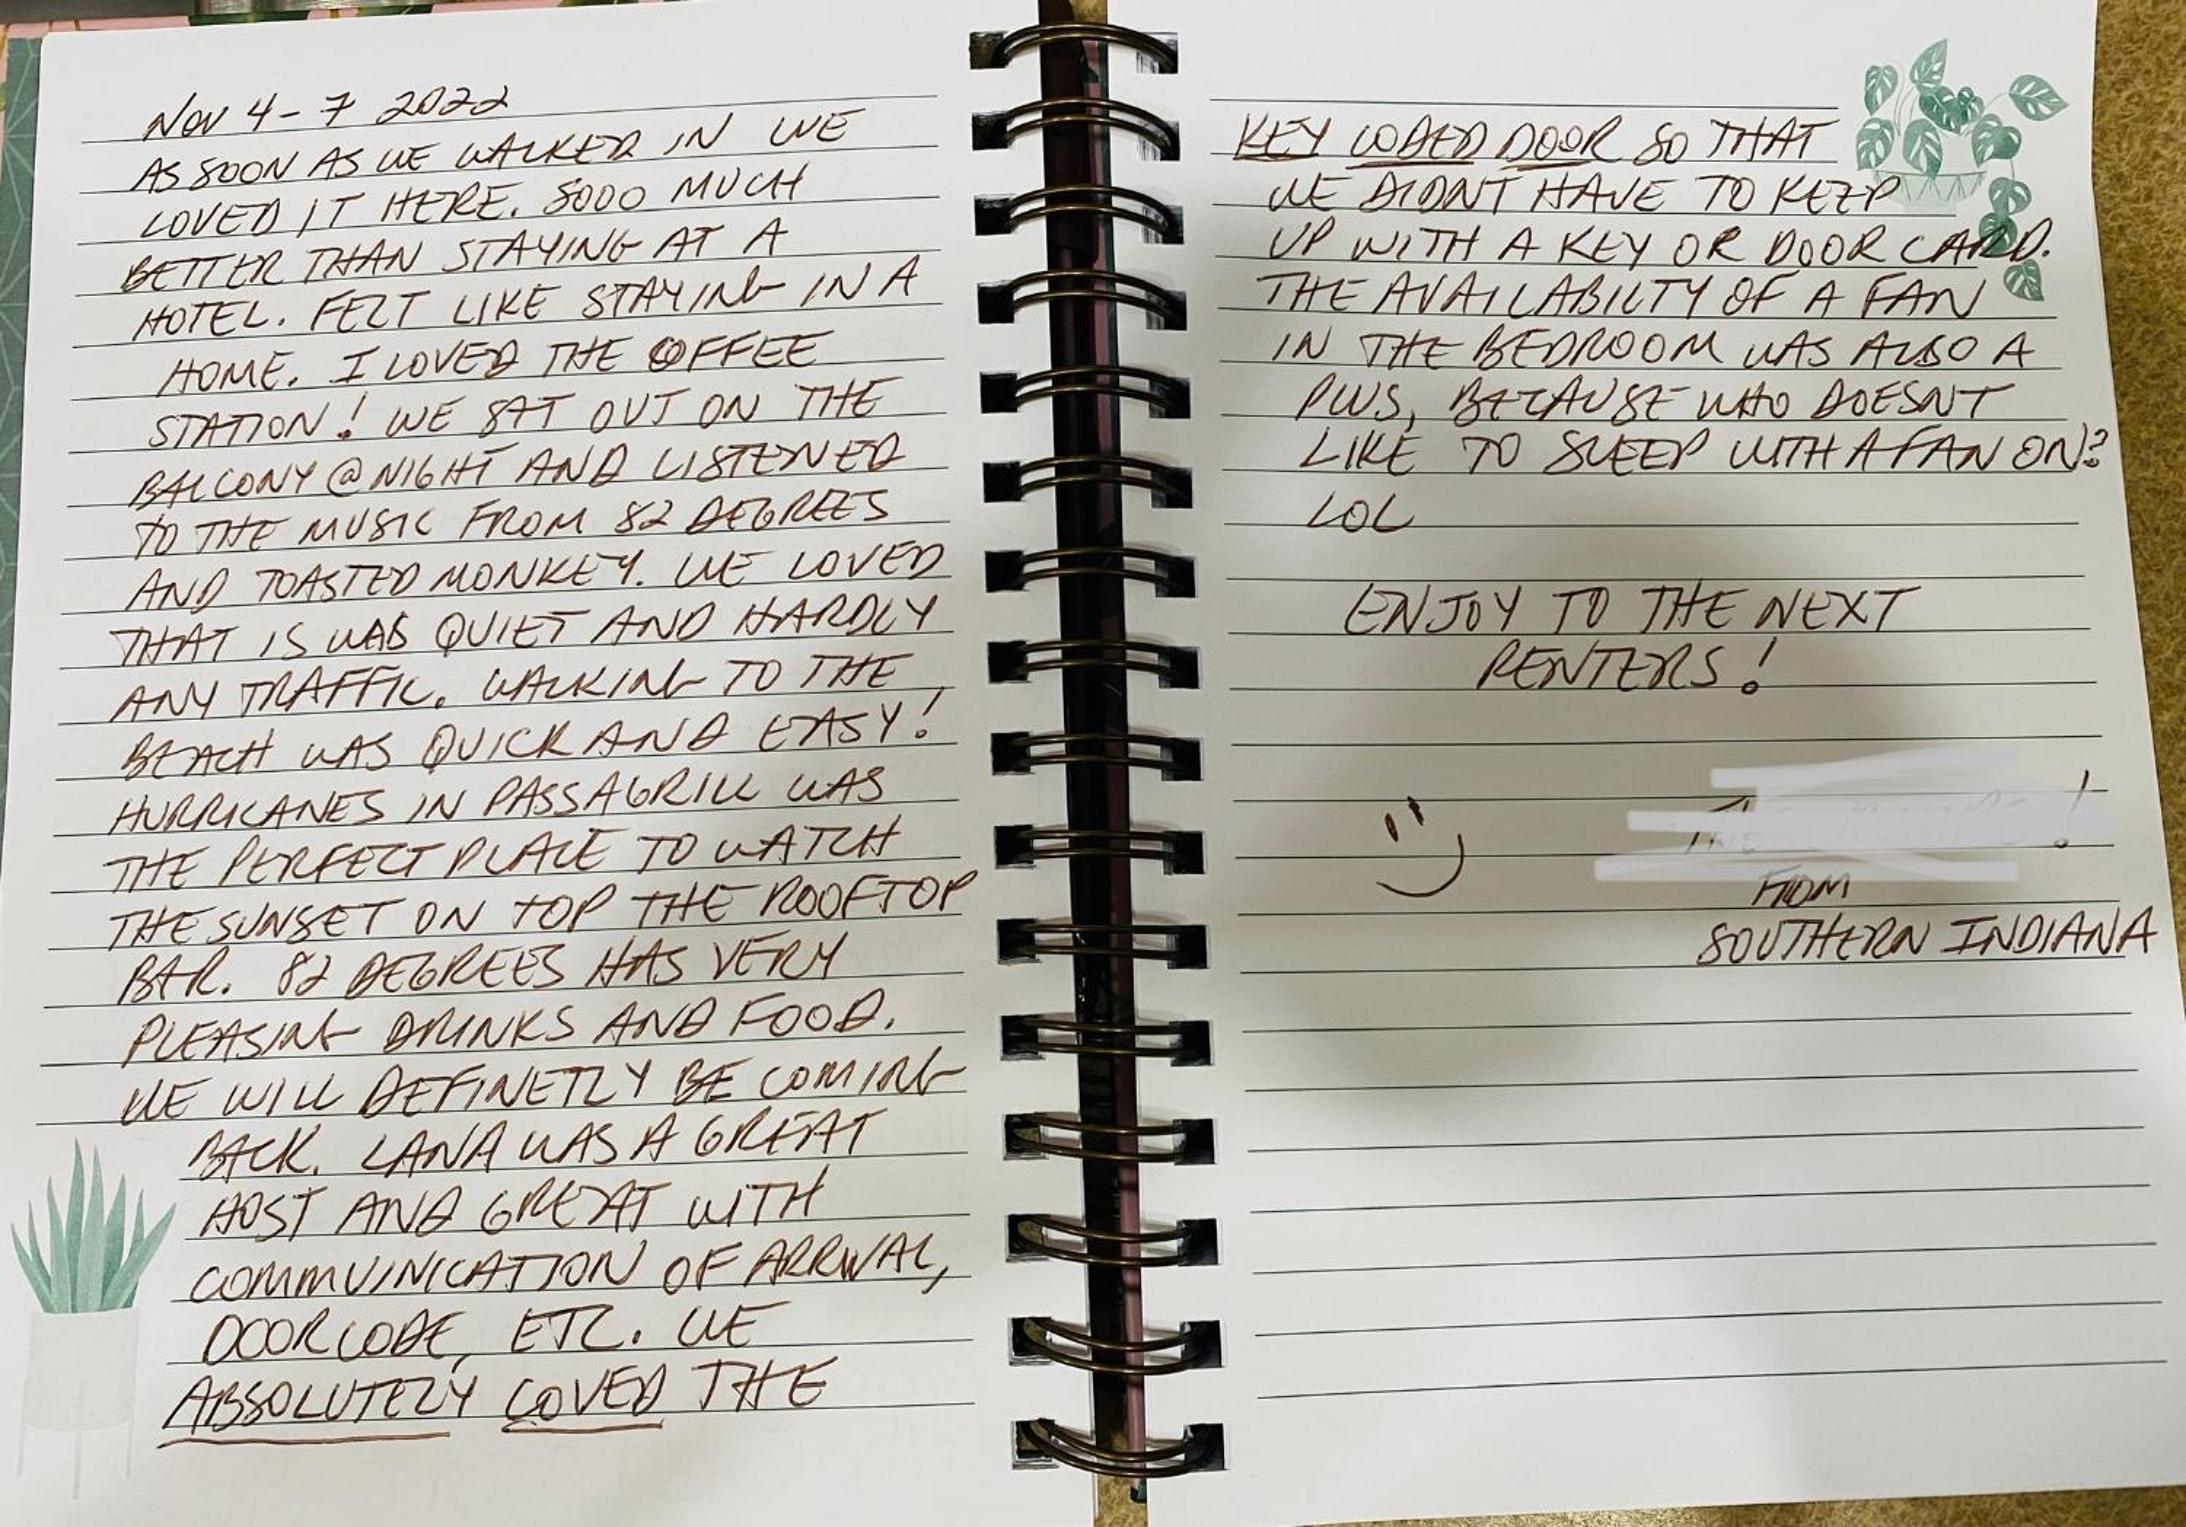 NOV 4-7 2022
AS SOON AS WE WALKED IN WE
LOVED IT HERE. SOOO MUCH
BETTER THAN STAYING AT A
HOTEL. FELT LIKE STAYING IN A
HOME. I LOVED THE COFFEE
STATION! WE SAT OUT ON THE
BALCONY @ NIGHT AND LISTENED
TO THE MUSIC FROM 82 DEGREES
AND TOASTED MONKEY. WE LOVED
THAT IS WAS QUIET AND HARDLY
ANY TRAFFIC. WALKING TO THE
BEACH WAS QUICK AND EASY!
HURRICANES IN PASSAGRILL WAS
THE PERFECT PLACE TO WATCH
THE SUNSET ON TOP THE ROOFTOP
BAR. 82 DEGREES HAS VERY
PLEASING DRINKS AND FOOD.
WE WILL DEFINETLY BE COMING
BACK. LANA WAS A GREAT
HOST AND GREAT WITH
COMMUNICATION OF ARRIVAL,
DOOR CODE, ETC. WE
ABSOLUTELY LOVED THE
KEY CODED DOOR SO THAT
WE DIDNT HAVE TO KEEP
UP WITH A KEY OR DOOR CARD.
THE AVAILABILTY OF A FAN
IN THE BEDROOM WAS ALSO A
PLUS, BECAUSE WHO DOESNT
LIKE TO SLEEP WITH A FAN ON?
LOL
ENJOY TO THE NEXT
RENTERS!
FROM
SOUTHERN INDIANA